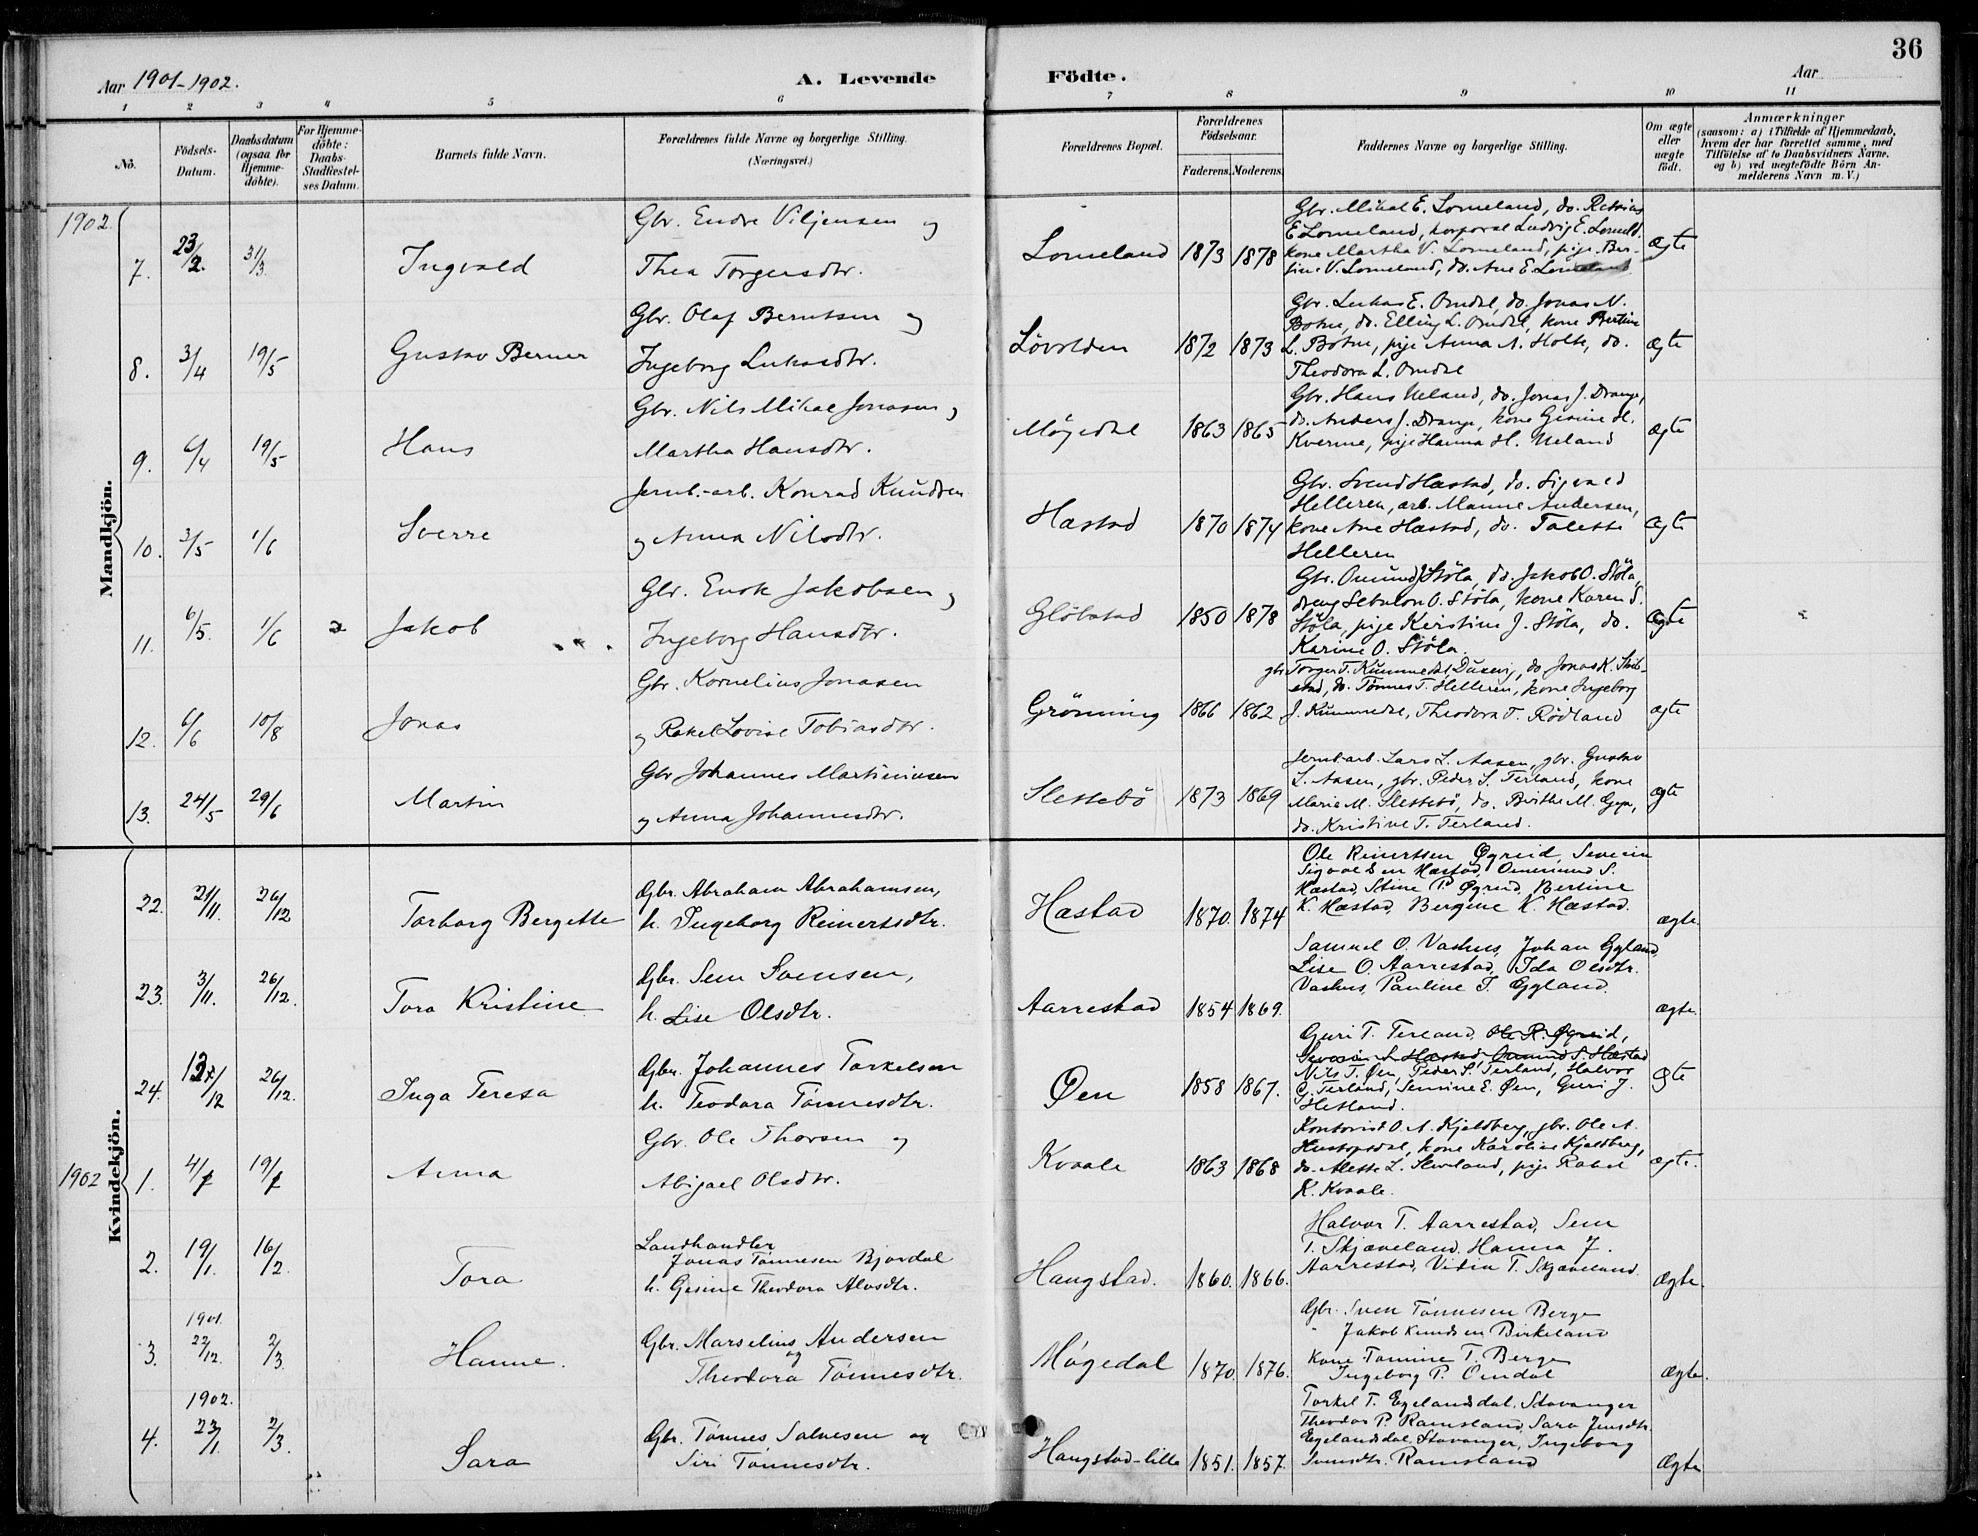 36
Aar 1901-1902.
A. Levende
Födte.
Aar
1 2 3 4 5 6 7 8 9 10 11
No.
Födsels-Datum.
Daabsdatum (ogsaa for Hjemme-döbte).
For Hjemme-döbte: Daabs-Stadfæstel-ses Datum.
Barnets fulde Navn.
Forældrenes fulde Navne og borgerlige Stilling.
(Næringsvei.)
Forældrenes Bopæl.
Forældrenes Födselsaar.
Faderens. Moderens.
Faddernes Navne og borgerlige Stilling.
Om ægte eller uægte födt.
Anmærkninger
(saasom: a) i Tilfælde af Hjemmedaab,
hvem der har forrettet samme, med
Tilföielse af to Daabsvidners Navne,
og b) ved uægtefödte Börn An-
melderens Navn m. V.)
Mandkjön.
1902.
7. 23/2. 31/3. Ingvald
Gbr. Endre Viljensen og
Thea Torgersdtr.
Lomeland 1873 1878
Gbr. Mikal E. Lomeland, do.
E Lomeland, korporal Ludvig E. Lomeld.
kone Martha V. Lomeland, pije Ber-
sine V. Lomeland, do. Ane E Lomeland
ægte
8. 3/4 19/5 Gustav Berner
Gbr. Olaf Berntsen og
Ingeborg Lukasdtr.
Lövolden 1872 1873
Gbr. Lukas E. Omdal, do. Jonas N.
Botne, do. Elling L. Omdal, kone Bertine
L. Botne, pije Anna N. Holte, do.
Theodora L. Omdal
ægte
9. 6/4 19/5 Hans
Gbr. Nils Mikal Jonasen og
Martha Hansdtr.
Möjedal 1863 1865
Gbr. Hans Ueland, do. Jonas J. Drange,
do. Anders J. Drange, kone Gesine H.
Kverme, pije Hanna H. Ueland
ægte
10. 3/5 1/6 Sverre
Jernb.-arb. Konrad Knudsen
og Anna Nilsdtr.
Hæstad 1870 1874
Gbr. Svend Hæstad, do. Sigvald
Helleren, arb. Manne Andersen,
kone Ane Hæstad, do. Talette
Helleren
ægte
11. 6/5. 1/6 Jakob
Gbr. Enok Jakobsen og
Ingeborg Hansdtr.
Glöbstad 1850 1878
Gbr. Omund J Stöla, do. Jakob O. Stöla,
dreng Sebulon O. Stöla, kone Karen S.
Stöla, pije Kirstine J. Stöla, do.
Karine O. Stöla.
ægte
12. 6/6 10/8 Jonas
Gbr. Kornelius Jonasen
og Rakel Lovise Tobiasdtr.
Grönning 1866 1862
gbr Torger T. Kummedal, do Jonas K.
do. Tönnes T. Helleren, kone Ingeborg
J. Kummedal, Theodora T. Rödland
ægte
13. 24/5 29/6 Martin
Gbr Johannes Martiniusen
og Anna Johannesdtr.
Slettebö 1873 1869
Jernb.arb. Lars L. Aasen, gbr. Gustav
L. Aasen, gbr. Peder S. Terland, kone
Marie M. Slettebö, do. Birthe M. Gya,
do. Kristine T. Terland.
ægte
Kvindekjön.
22. 21/11. 26/12 Torborg Bergette
Gbr. Abraham Abrahamsen,
h. Ingeborg Reinertsdtr.
Hæstad 1870. 1874
Ole Reinertsen Øgreid, Severin
Sigvaldsen Hæstad, Ommund S.
Hæstad, Stine P. Øgreid, Bertine
K. Hæstad, Bergine K. Hæstad.
ægte.
23. 3/11. 26/12. Tora Kristine
Gbr. Sem Svensen,
h. Lise Olsdtr.
Aarrestad 1854 1869.
Samuel O. Vashus, Johan Gyland,
Lise O. Aarrestad, Ida Olsdtr.
Vashus, Pauline T. Gyland.
ægte.
24. 26/12. Inga Teresa
Gbr. Johannes Torkelsen
h. Teodora Tönnesdtr.
Øen 1858 1867.
Guri T. Terland, Ole R. Øgreid,
Severin S. Hæstad, Omund S. Hæstad
Nils T. Øen, Peder S. Terland, Halvor
G. Terland, Semine E. Øen, Guri J.
Hetland.
Ægte
1902 1. 4/1 19/1 Anna
Gbr. Ole Thorsen og
Abigael Olsdtr.
Kvaale 1863 1868
Kontorist O. A. Kjeldberg, gbr. Ole A.
kone Karoline Kjeldberg,
do. Alette L. pije Rakel
K. Kvaale.
ægte.
2. 19/1. 16/2. Tora
Landhandler
Jonas Tönnesen Bjordal
h. Gesine Theodora Alvsdtr.
Haugstad. 1860. 1866.
Halvor T. Aarrestad, Sem
T. Skjæveland, Hanna J.
Aarrestad, Vidia T. Skjæveland.
Ægte.
1901.
3. 22/12. 2/3. Hanne.
Gbr. Marselius Andersen
og
Theodora Tönnesdtr.
Mögedal 1870. 1876.
Gbr. Sven Tönnesen Berge
" Jakob Knudsen Birkeland
Kone Tomine T. Berge
Ingeborg P. Omdal
Ægte.
1902.
4. 23/1. 2/3. Sara
Gbr. Tönnes Salvesen og
Siri Tönnesdtr.
Haugstad-lille 1851. 1857.
Torkel T. Egelandsdal, Stavanger
Theodor P. Ramsland, Sara Jensdtr.
Egelandsdal, Stavanger, Ingeborg
Svensdtr. Ramsland
Ægte